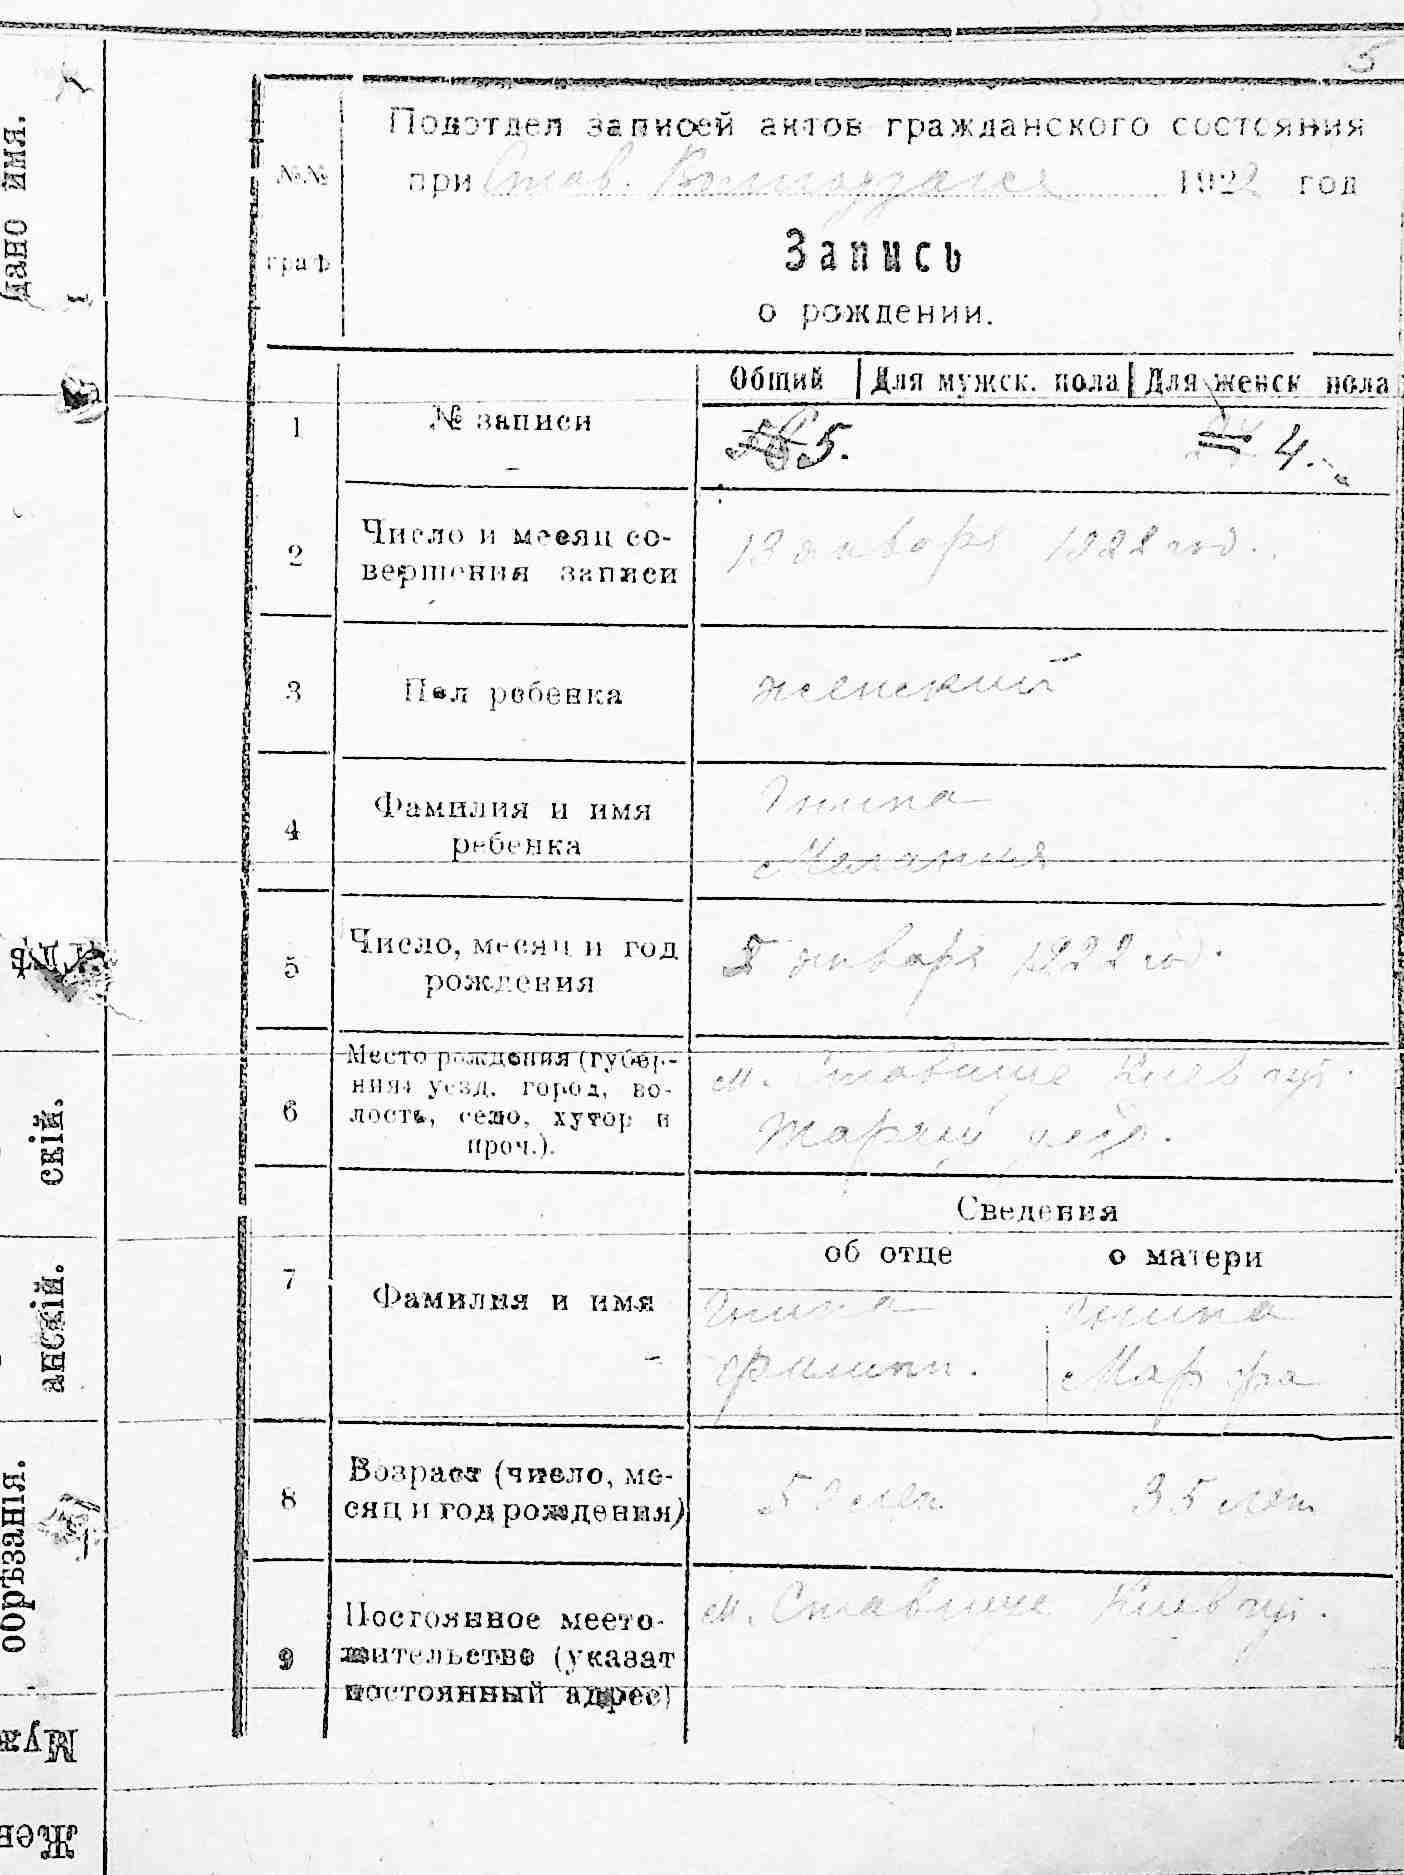 5
дано имя.
Подотдел записей актов гражданского состояния
№№ при Став. 1922 год
граф
Запись
о рождении.
Общий Для мужск. пола Для женск пола
1 № записи 5. 4.
2 Число и месяц со-
вершения записи
13 января 1922 год.
3 Пол ребенка женский
4 Фамилия и имя
ребенка
Мелания
5 Число, месяц и год
рождения
января 1922 год.
6 Место рождения (губер-
ния, уезд, город, во-
лость, село, хутор и
проч.).
м. Ставище Киев губ.
уезд.
Сведения
об отце о матери
7 Фамилия и имя
Филипп. Марфа
8 Возраст (число, ме-
сяц и год рождения)
50 лет 35 лет
9 Постоянное место-
жительство (указат
постоянный адрес)
м. Ставище Киев губ.
скій.
анскій.
обрѣзанія.
Муж
Жен